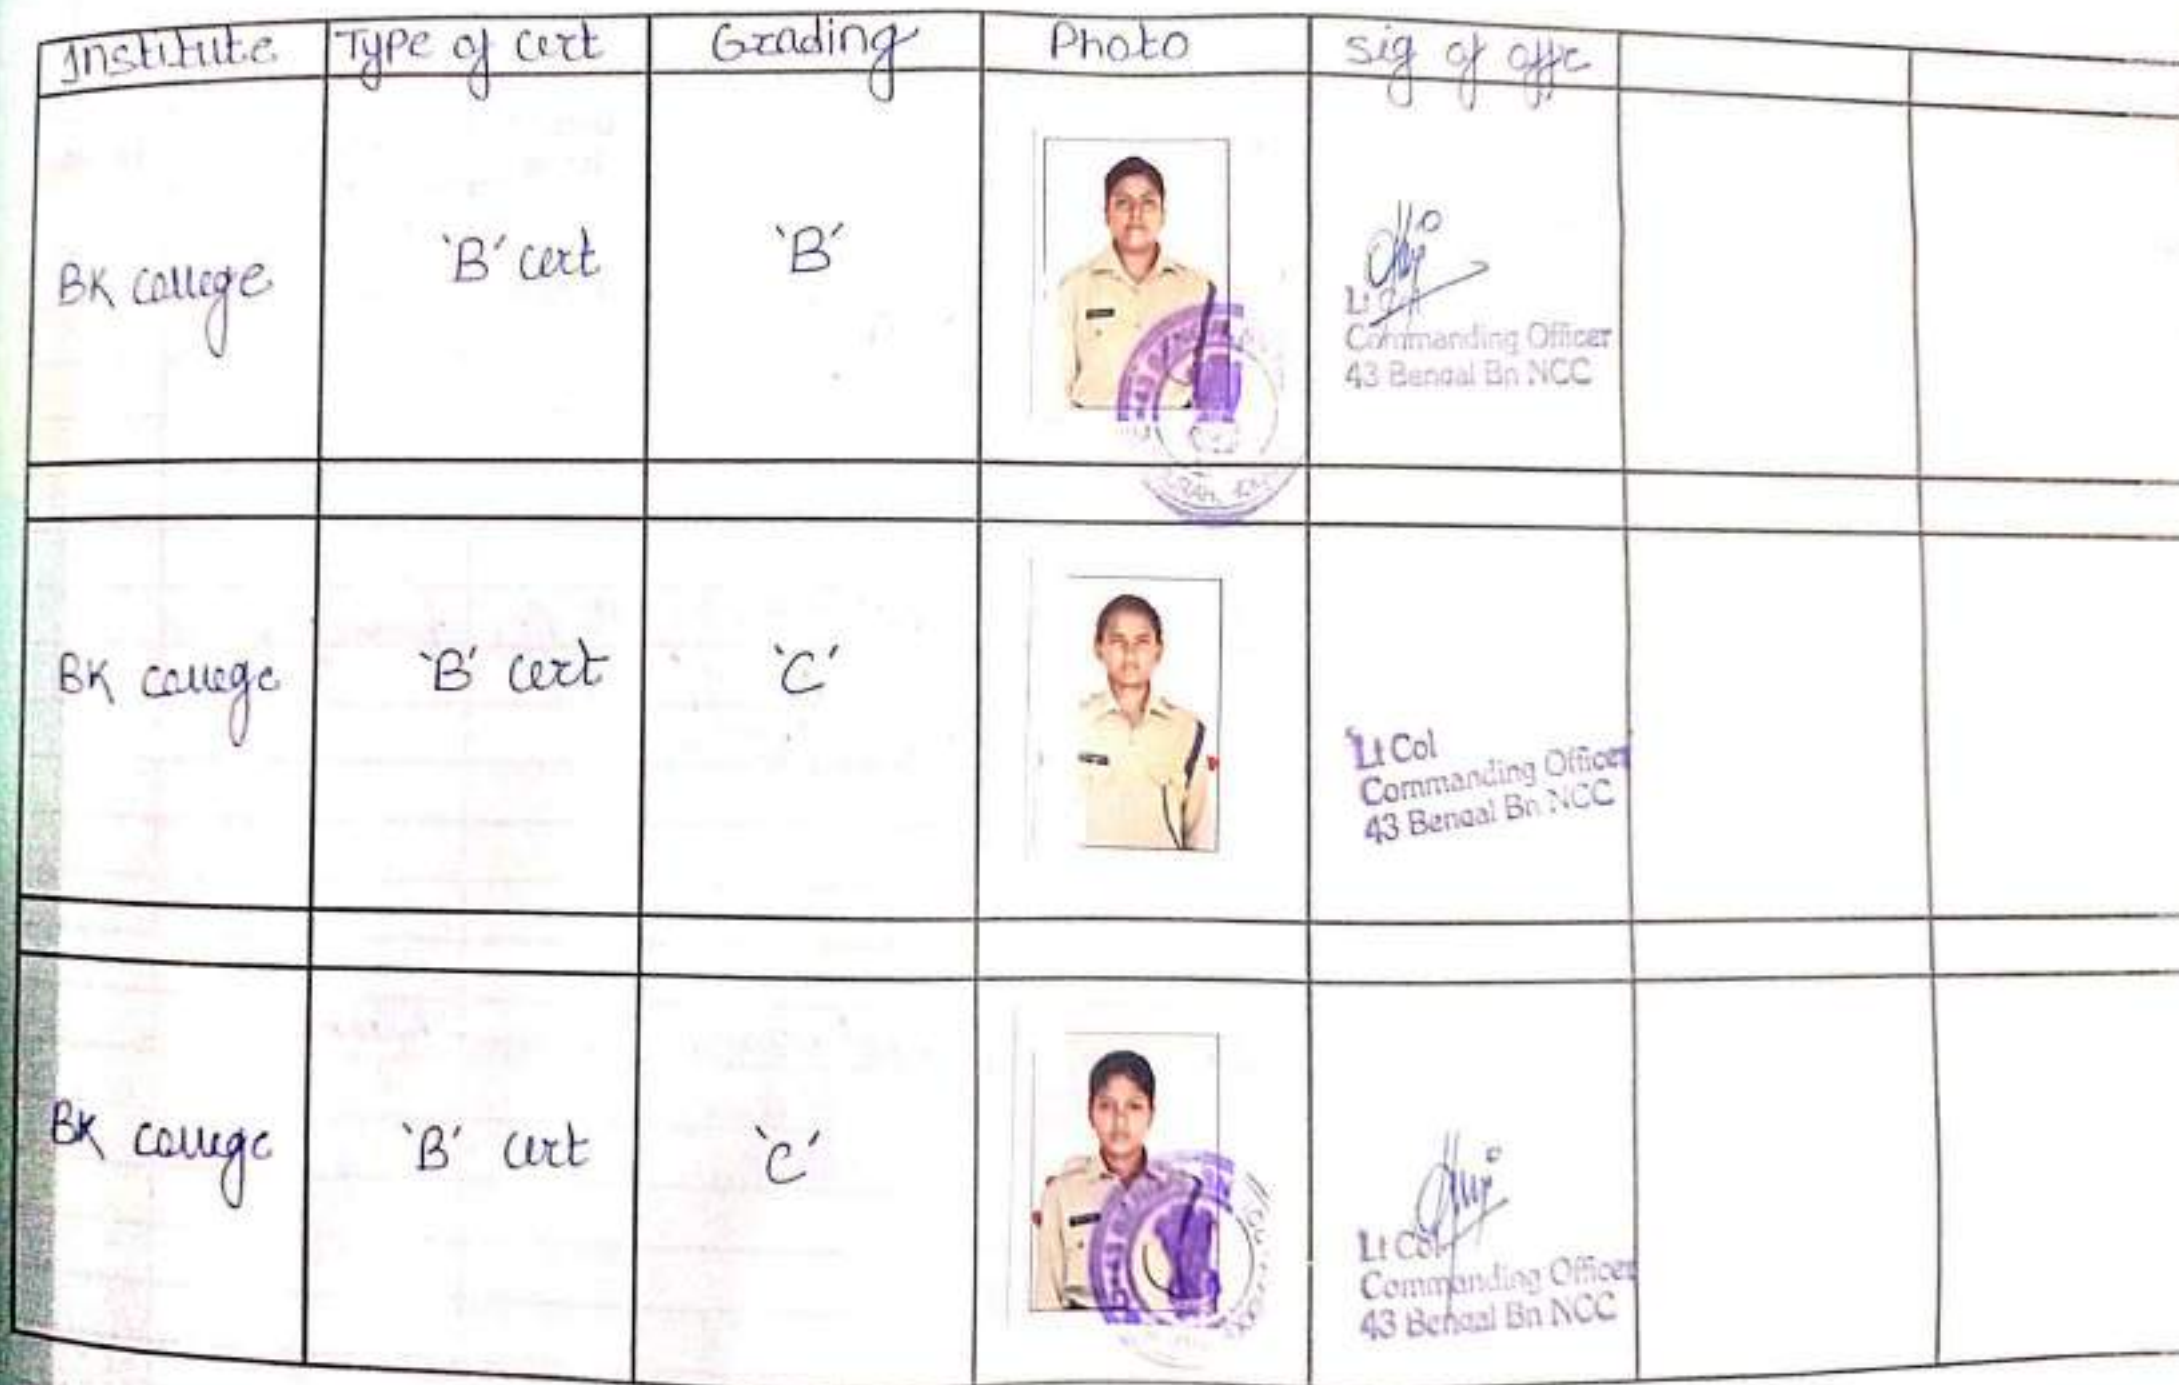 Institute Type of cert Grading Photo sig of offc
BK college 'B' cert 'B'
Lt
Commanding Officer
43 Bengal Bn NCC
BK college 'B' cert 'C'
Lt Col
Commanding Officer
43 Bengal Bn NCC
BK college 'B' cert 'C'
Lt Col
Commanding Officer
43 Bengal Bn NCC